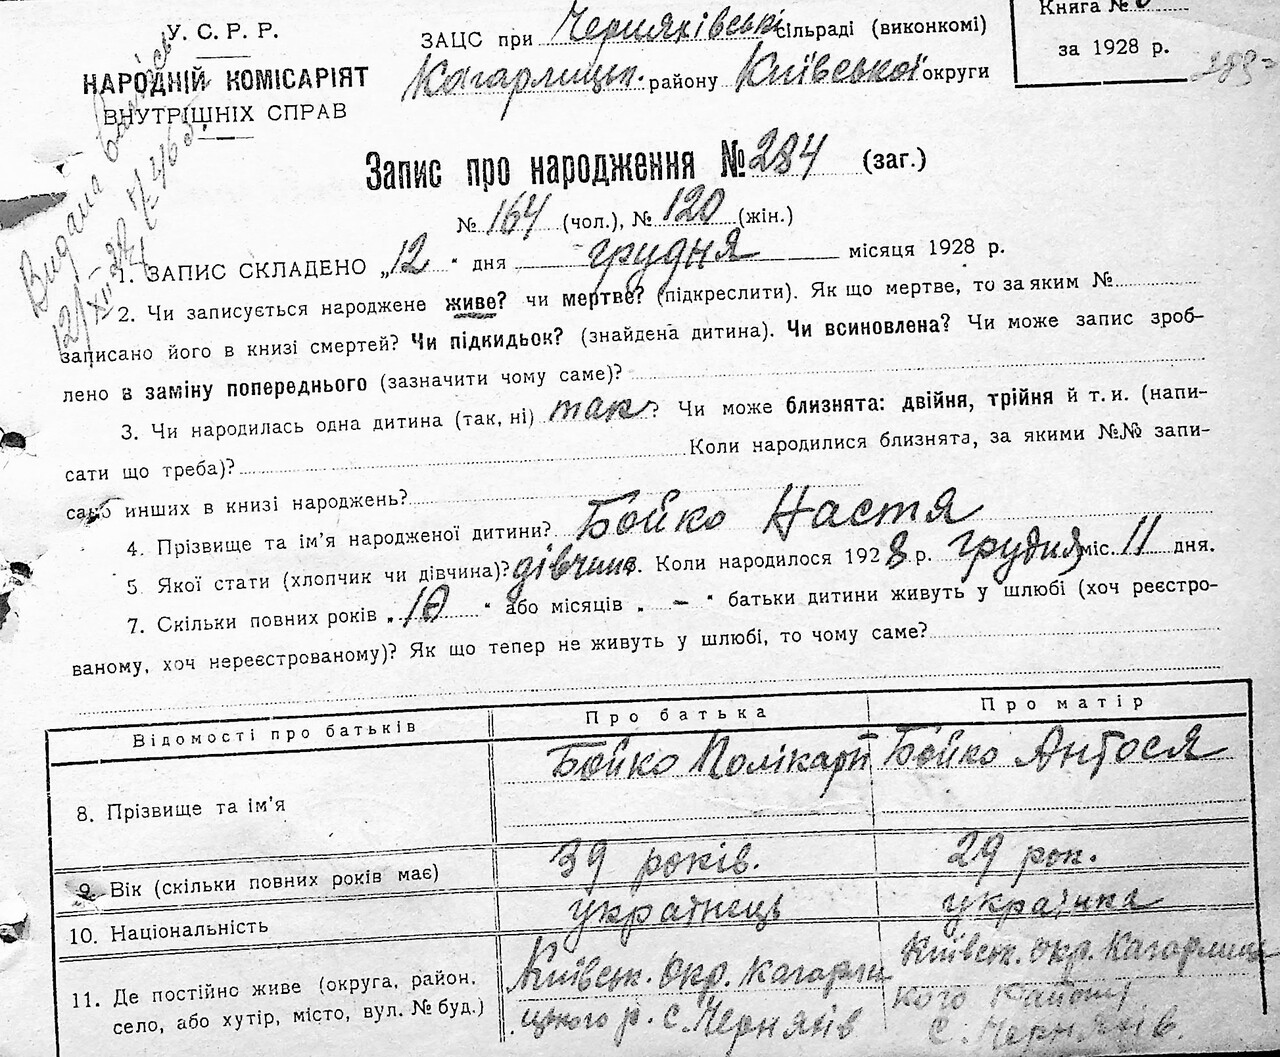 У.С.Р.Р.
НАРОДНІЙ КОМІСАРІЯТ
ВНУТРІШНІХ СПРАВ
ЗАЦС при Черняхівські сільраді (виконкомі)
Кагарлицьк. району Київської округи
Книга №
за 1928 р.
289
Видана
Запис про народження № 284 (заг.)
№ 164 (чол.), № 120 (жін.)
1. ЗАПИС СКЛАДЕНО „12" дня грудня місяця 1928 р.
2. Чи записується народжене живе? чи мертве? (підкреслити). Як що мертве, то за яким №
записано його в книзі смертей? Чи підкидьок? (знайдена дитина). Чи всиновлена? Чи може запис зроб-
лено в заміну попереднього (зазначити чому саме)?
3. Чи народилась одна дитина (так, ні) так? Чи може близнята: двійня, трійня й т. и. (напи-
сати що треба)? Коли народилися близнята, за якими №№ запи-
сано инших в книзі народжень?
4. Прізвище та ім'я народженої дитини? Бойко Настя
5. Якої стати (хлопчик чи дівчина)? дівчина. Коли народилося 1928 р. грудня міс. 11 дня.
7. Скільки повних років „10" або місяців „-" батьки дитини живуть у шлюбі (хоч реєстро-
ваному, хоч нереєстрованому)? Як що тепер не живуть у шлюбі, то чому саме?
Відомості про батьків Про батька Про матір
8. Прізвище та ім'я Бойко Полікарп Бойко Антося
9. Вік (скільки повних років має) 39 років. 29 рок.
10. Національність українець українка
11. Де постійно живе (округа, район, село, або хутір, місто, вул. № буд.)
Київськ. Окр. Кагарли
цького р. с. Черняхів
Київськ. окр. Кагарлиць
кого Району
с. Черняхів.